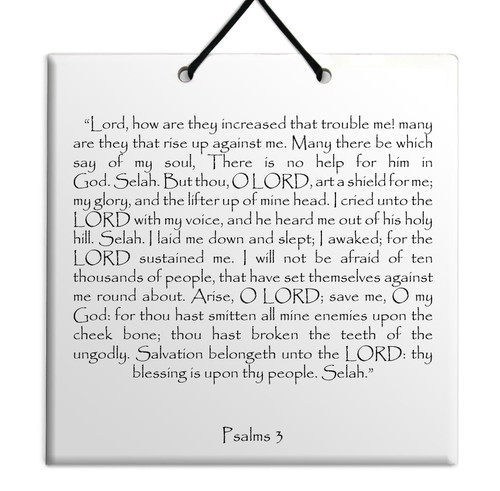 “Lord, how are they increased that trouble me! many
are they that rise up against me. Many there be which
say of my soul, There is no help for him in
God. Selah. But thou, O LORD, art a shield for me;
my glory, and the lifter up of mine head. I cried unto the
LORD with my voice, and he heard me out of his holy
hill. Selah. I laid me down and slept; I awaked; for the
LORD sustained me. I will not be afraid of ten
thousands of people, that have set themselves against
me round about. Arise, O LORD; save me, O my
God: for thou hast smitten all mine enemies upon the
cheek bone; thou hast broken the teeth of the
ungodly. Salvation belongeth unto the LORD: thy
blessing is upon thy people. Selah.”
Psalms 3